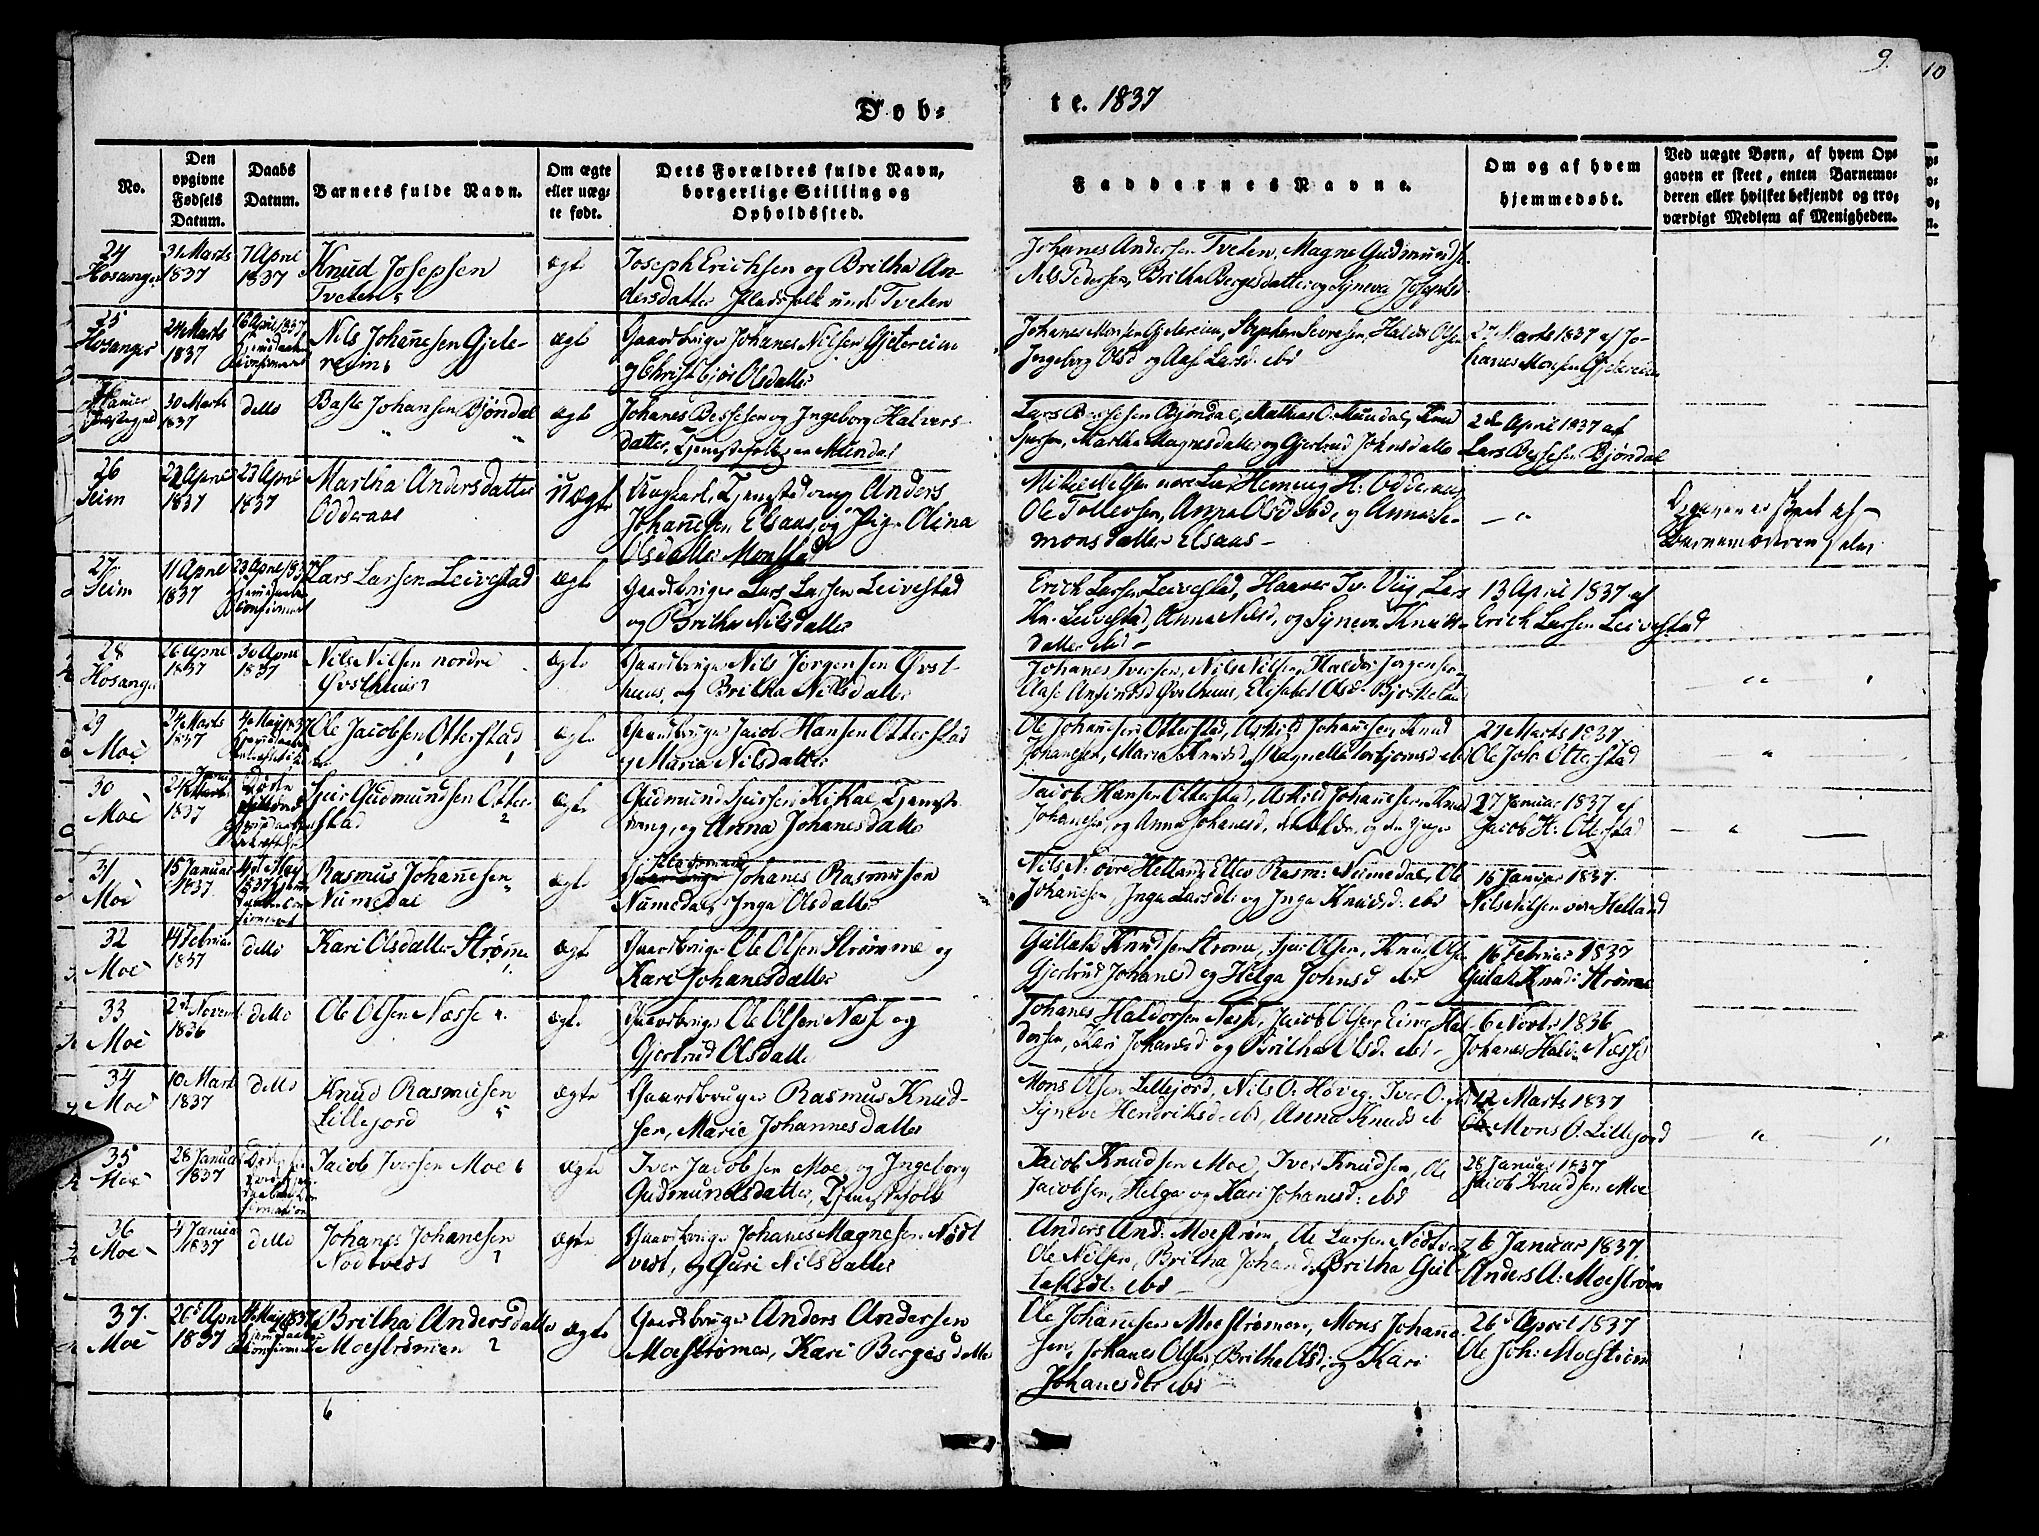 9.
10
Døb-
te. 1837
No.
Den opgivne Fødsels Datum.
Daabs Datum.
Barnets fulde Navn.
Om ægte eller uæg-te født.
Dets Forældres fulde Navn, borgerlige Stilling og Opholdssted.
Faddernes Navne.
Om og af hvem hjemmedøbt.
Ved uægte Børn, af hvem Op-
gaven er skeet, enten Barnemo-
deren eller hvilket bekjendt og tro-
værdigt Medlem af Menigheden.
24
Hosanger
31 Marts
1837
7 April
1837
Knud Josephsen
Tveten
ægte
Joseph Erichsen og Britha An-
dersdatter Pladsfolk under Tveten
Johanes Andersen Tveten, Magne Gudmunds.
Nils Pedersen, Britha Bergesdatter og Syneva Josephsd
25
Hosanger
24 Marts
1837
16 April 1837
Nils Johanesen Gjele-
reim
ægte
Gaardbruger Johanes Nilsen Gjelereim
og Christbjør Olsdatter
Johanes Monsen Gjelereim, Stephen Severesen, Haldor Olsen
Ingeborg Olsd og Aase Larsd. ibd
27 Marts 1837 af Jo-
hanes Monsen Gjelereim
30 Marts
1837
ditto
Baste Johansen Bjøndal
ægte
Johanes Bessesen og Ingeborg Halvers-
datter, Tjenestefolk paa Mundal
Lars Bessesen Bjøndal, Mathias O. Mundal, Knud
Martha Magnesdatter og Gjertrud Johnsdatter
2den April 1837 af
Lars Bessesen Bjøndal
26
Seim
22 April
1837
23 April
1837
Martha Andersdatter
Odderaas
uægte
Ungkarl, Tjenestedreng Anders
Johanesen Elsaas og Pige Olina
Olsdatter Monstad
Heming H. Odderaas,
Ole Tollevsen, Anna Olsd ibd, og Anna Se-
monsdatter Elsaas
Opgaven er skeet af
Barnemoderen selv
27
Seim
11 April
1837
23 April 1837
Lars Larsen Leivestad
ægte
Gaardbruger Lars Larsen Leivestad
og Britha Nilsdatter
Erich Larsen Leivestad, Haaver Iv. Lars
Kn. Leivestad, Anna Nilsd, og Syneva Knuts-
datter ibd
13 April 1837 af
Erich Larsen Leivestad
28
Hosanger
26 April
1837
30 April
1837
Nils Nilsen nordre
Øvsthuus
ægte
Gaardbruger Nils Jørgensen Øvst-
huus, og Britha Nilsdatter
Johanes Iversen, Nils Nilsen, Haldor Jørgensen
Aase Anfindsd Øvsthuus, Elisabet Olsd. Bjørkeland
29
Moe
24 Marts
1837
Ole Jacobsen Otterstad
ægte
Gaardbruger Jacob Hansen Otterstad
og Maria Nilsdatter
Ole Johanesen Otterstad, Askild Johanesen, Knud
Johanesen, Marie Knudsd og Magnella Torbjørnsd ibd
27 Marts 1837
Ole Joh. Otterstad
30
Moe
1837
Sjur Gudmundsen Otter-
stad
ægte
Gudmund Sjursen Tjeneste
dreng, og Anna Johanesdatter
Jacob Hansen Otterstad, Askild Johanesen, Knud
Johanesen, og Anna Johanesd,
27 Januar 1837 af
Jacob H. Otterstad
31
Moe
15 Januar
1837
Rasmus Johanesen
Numedal
ægte
Johanes Rasmusen
Numedal, Inga Olsdatter
Nils N. øvre Helland, Ellev Rasm: Numedal, Ole
Johanesen, Inga Larsdtr og Inga Knudsd. ibd
15 Januar 1837.
Nils Nilsen øvre Helland
32
Moe
14 Februar
1837
ditto
Kari Olsdatter Strøme
ægte
Gaardbruger Ole Olsen Strømme og
Kari Johanesdatter
Gullak Knudsen Strøme, Sjur Olsen, Knud Olsen
Gjertrud Johanesd og Helga Johnsd ibd
16 Februar 1837
Gulak Knud: Strøme
33
Moe
2d Novemb
1836
ditto
Ole Olsen Næsse
ægte
Gaardbruger Ole Olsen Næsse og
Gjertrud Olsdatter
Johanes Haldorsen Næsse, Jacob Olsen, Einer Hal-
dorsen, Kari Johanesd og Britha Olsd. ibd
6 Novbr 1836
Johanes Hald: Næsse
34
Moe
10 Marts
1837
ditto
Knud Rasmusen
Lillejord
ægte
Gaardbruger Rasmus Knud-
sen, Marie Johannesdatter
Mons Olsen Lillejord, Nils O. Høveg, Iver O.
Syneve Hendriksd ibd, Anna Knudsd
12 Marts 1837
Mons O. Lillejord
35
Moe
28 Januar
1837
Jacob Iversen Moe
ægte
Iver Jacobsen Moe, og Ingeborg
Gudmundsdatter, Tjenestefolk
Jacob Knudsen Moe, Iver Knudsen, Ole
Jacobsen, Helga og Kari Johanesd: ibd
28 Januar 1837
Jacob Knudsen Moe
36
Moe
4 Januar
1837
ditto
Johanes Johanesen
Nødtvedt
ægte
Gaardbruger Johanes Magnesen Nødt
vedt, og Guri Nilsdatter
Anders And: Moestrøm, Ole Larsen Nødtvedt
Ole Nilsen, Britha Johanesd, Britha Gul-
laksdt. ibd
6 Januar 1837.
Anders A: Moestrøm
37.
Moe
26 April
1837
Britha Andersdatter
Moestrømen
ægte
Gaardbruger Anders Andersen
Moestrømen, Kari Bergesdatter
Ole Johanesen Moestrømen, Mons Johane-
sen, Johanes Olsen, Britha Olsd, og Kari
Johanesdtr ibd
26 April 1837
Ole Joh: Moestrøm
6